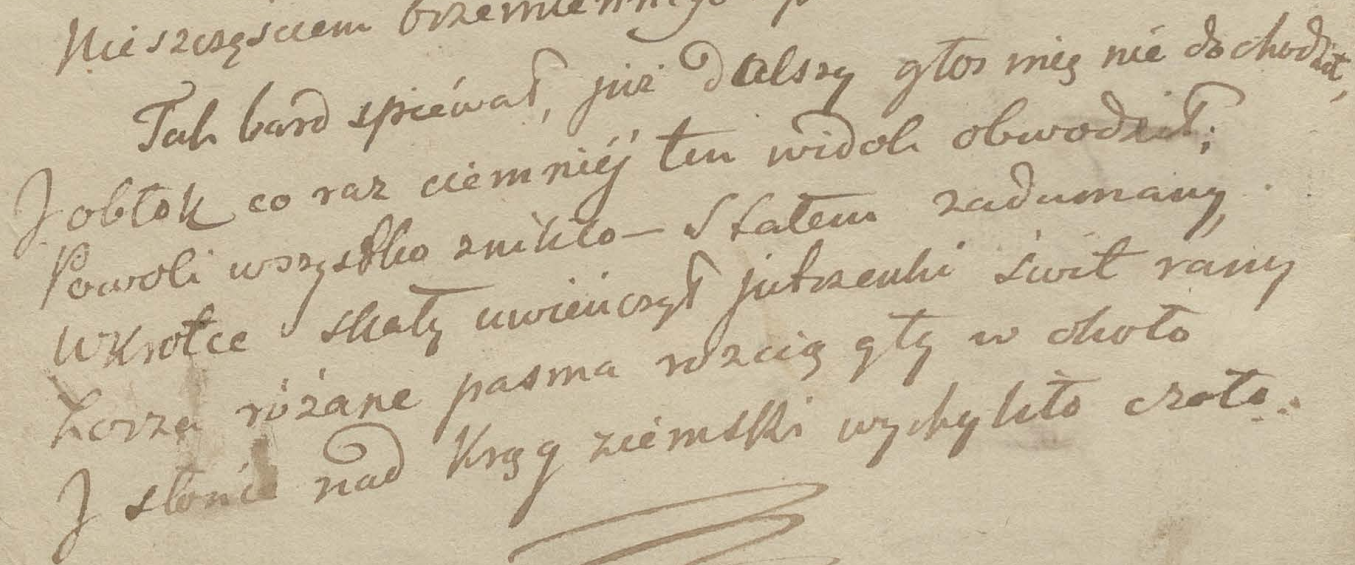 Nieszczęściem brzemiennego
Tak bard spiéwał, już dalszy głos mię nié dochodził,
J obłok co raz ciemniéj ten widok obwodził;
Powoli wszystko znikło – Stałem zadumany,
Wkrotce skały uwieńczył jutrzenki świt rany
Zorza różane pasma rozciągły w około
J słońce nad Krąg ziemski wychyliło czoło.